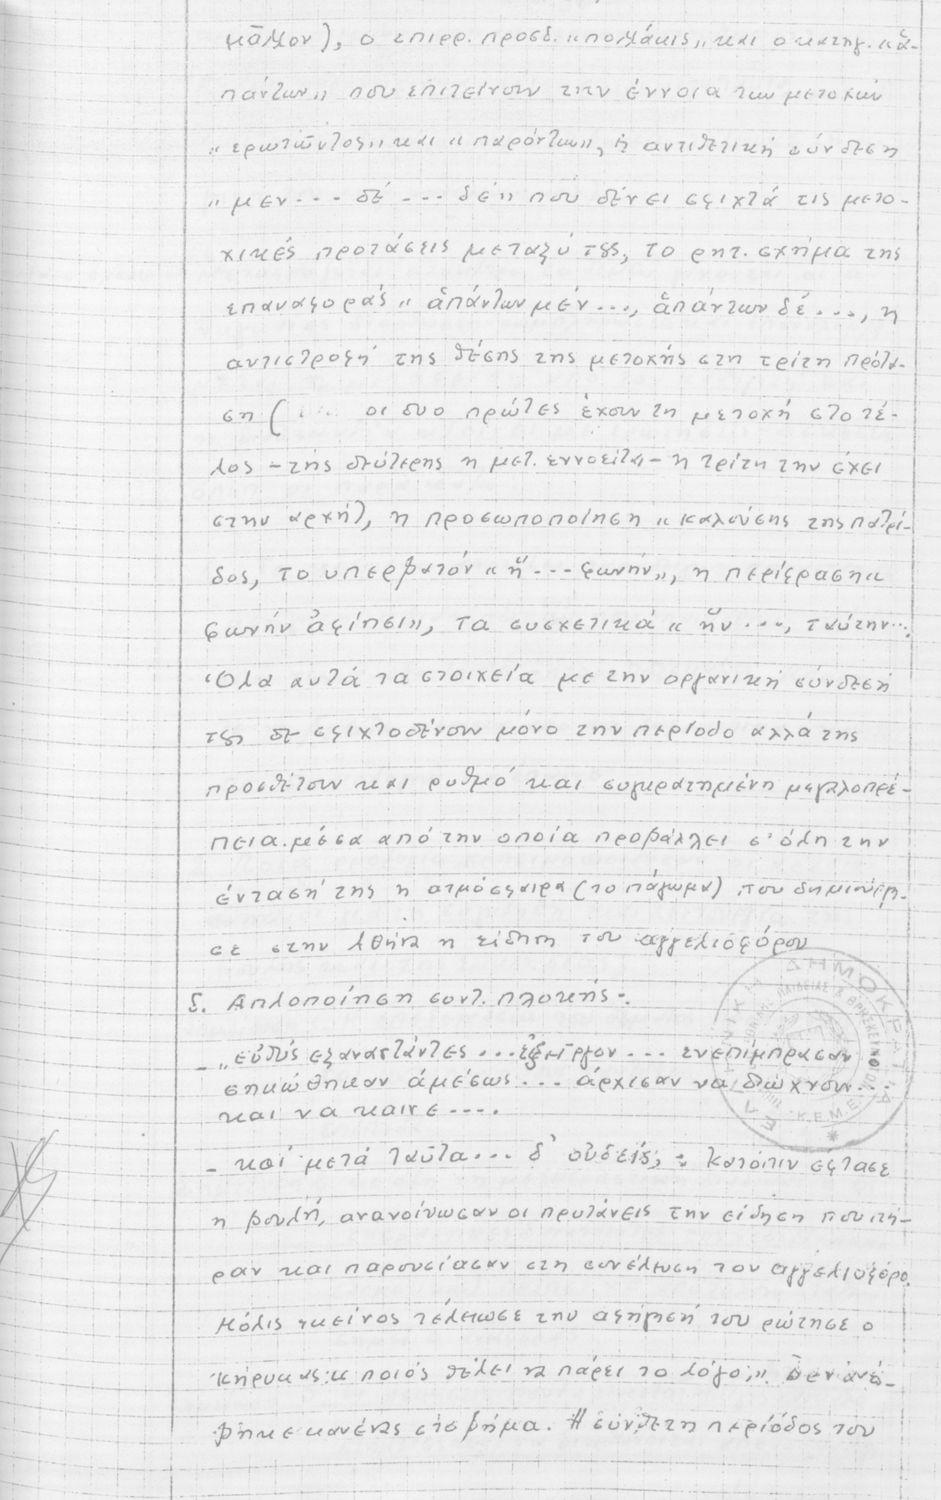 μᾶλλον), ο επιρρ. προσδ. "πολλάκις" και ο κατηγ. "ἁ-
πάντων" που επιτείνουν την έννοια των μετοχών
"ερωτῶντος" και "παρόντων", η αντιθετική σύνδεση
"μεν --- δέ --- δέ" πού δένει σφιχτά τις μετο-
χικές προτάσεις μεταξύ τους, το ρητ. σχήμα της
επαναφοράς "ἁπάντων μέν ..., ἁπάντων δέ ..., η
αντιστροφή της θέσης της μετοχής στη τρίτη πρότα-
ση ( οι δυο πρώτες έχουν τη μετοχή στο τέ-
λος - της δεύτερης η μετ. εννοείται - η τρίτη την έχει
στην αρχή), η προσωποποίηση "καλούσης της πατρί-
δος, το υπερβατόν "ἥ --- φωνήν", η περίφραση "
φωνήν ἀφίησι", τα συσχετικά "ἥν ..., ταύτην ...
Όλα αυτά τα στοιχεία με την οργανική σύνδεσή
τους δε σφιχτοδένουν μόνο την περίοδο αλλά της
προσθέτουν και ρυθμό και συγκρατημένη μεγαλοπρέ-
πεια. μέσα από την οποία προβάλλει σ' όλη την
έντασή της η ατμόσφαιρα (το πάγωμα) που δημιούργη-
σε στην Αθήνα η είδηση του αγγελιοφόρου
5. Απλοποίηση συντ. πλοκής -.
- "εὐθύς εξαναστάντες ... ἐξεῖργον --- ενεπίμπρασαν
σηκώθηκαν άμέσως ... άρχισαν να διώχνουν ...
και να καινε ----.
- καί μετά ταῦτα ... δ' οὐδείς, : Κατόπιν έφτασε
η βουλή, ανακοίνωσαν οι πρυτάνεις την είδηση που πή-
ραν και παρουσίασαν στη συνέλευση τον αγγελιοφόρο.
Μόλις εκείνος τέλειωσε την αφήγησή του ρώτησε ο
κήρυκας: "ποιός θέλει να πάρει το λόγο;". Δεν ανέ-
βηκε κανένας στο βήμα. Η σύνθετη περίοδος του
ΕΛΛΗΝΙΚΗ ΔΗΜΟΚΡΑΤΙΑ
Κ.Ε.Μ.Ε.